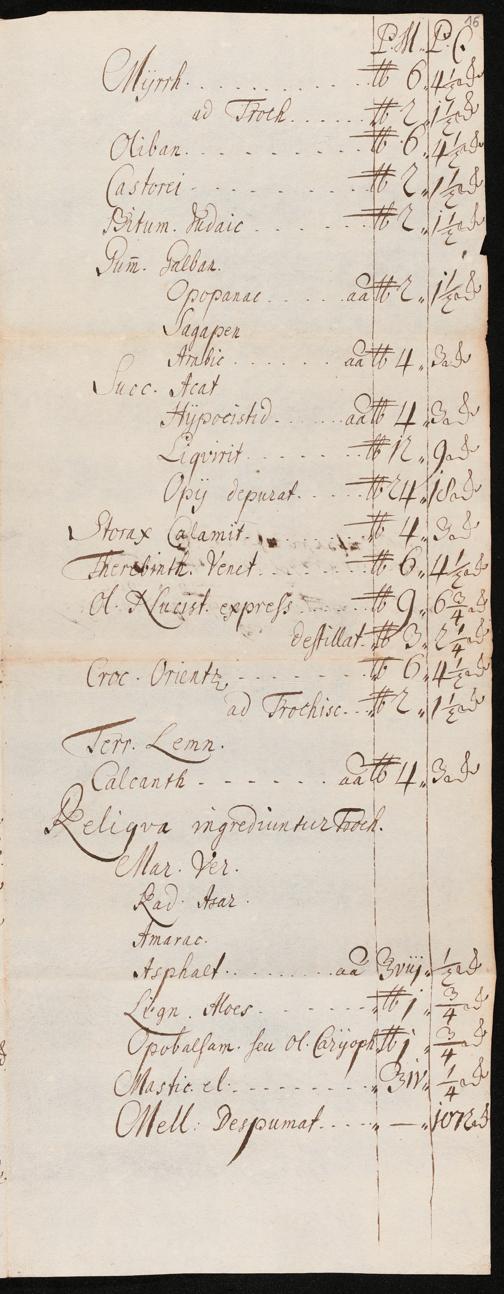 16
P.M. P.C.
Myrrh. . . . . . . . . . . ℔ 6 „ 4½
ad Troch. . . . . . ℔ 2 „ 1½
Oliban. . . . . . . . . . ℔ 6 „ 4½
Castorei . . . . . . . . . ℔ 2 „ 1½
Bitum. Judaic . . . . . . . ℔ 2 „ 1½
Gum̄. Galban.
Opopanac . . . . . aa ℔ 2 „ 1½
Sagapen
Arabic . . . . . . . aa ℔ 4 „ 3
Succ. Acat
Hypocistid . . . . . aa ℔ 4 „ 3
Liqvirit . . . . . . . ℔ 12 „ 9
Opij depurat. . . . . ℔ 24 „ 18
Storax Calamit. . . . . . . ℔ 4 „ 3
Therebinth. Venet. . . . . . ℔ 6 „ 4½
Ol. Nucist. express . . . . . ℔ 9 „ 6¾
destillat. ℔ 3 „ 2¼
Croc. Oriental. . . . . . . ℔ 6 „ 4½
ad Trochisc. . . ℔ 2 „ 1½
Terr. Lemn.
Calcanth - - - - - - aa ℔ 4 „ 3
Reliqva ingrediuntur Troch.
Mar. Ver.
Rad. Asar.
Amarac.
Asphalt. . . . . . . . aa ʒviij „ ½
Lign. Aloes. . . . . . . . ℔ j „ ¾
Opobalsam. seu Ol. Caryoph ℔ j „ ¾
Mastic. el. . . . . . . . . „ ʒiv „ ¼
Mell: Despumat. . . . . „ — „ 1072